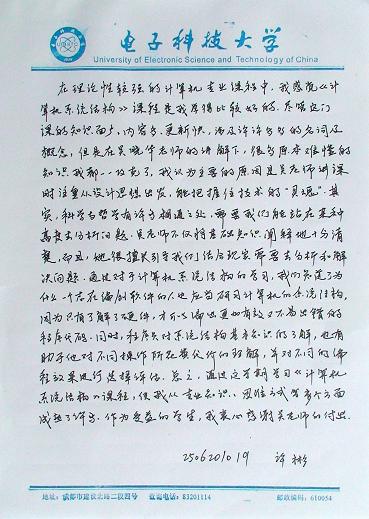 电子科技大学
University of Electronic Science and Technology of China
在理论性较强的计算机专业课程中,我感觉《计
算机系统结构》课程是我学得比较好的。尽管这门
课的知识面大,内容多,更新快,涉及许许多多的名词及
概念,但是在吴晓华老师的讲解下,很多原本难懂的
知识我都一一攻克了,我认为主要的原因是吴老师讲课
时注重从设计思想出发,能把握住技术的“灵魂”。其
实,科学与哲学有许多相通之处,都要我们能站在某种
高度去分析问题,吴老师不仅将基础知识阐释地十分清
楚,而且,她很擅长引导我们
解决问题。通过对于计算机系统结构的学习,我们知道了为
什么一个在编制软件的人也应当研习计算机的系统结构,
因为只有了解了硬件,才可以写出更加有效又不易出错的
程序代码。同时,程序员对系统结构基本知识的了解,也有
助于他对不同操作所花费代价的理解,并对不同的
效果进行选择评估。总之,通过这学期学习《计算机
系统结构》课程,使我从专业知识、思维方式等多个方面
成熟了许多。作为受益的学生,我衷心感谢吴老师的付出。
2506201019 许
地址:成都市建设北路二段四号 查询电话:83201114 邮政编码:610054